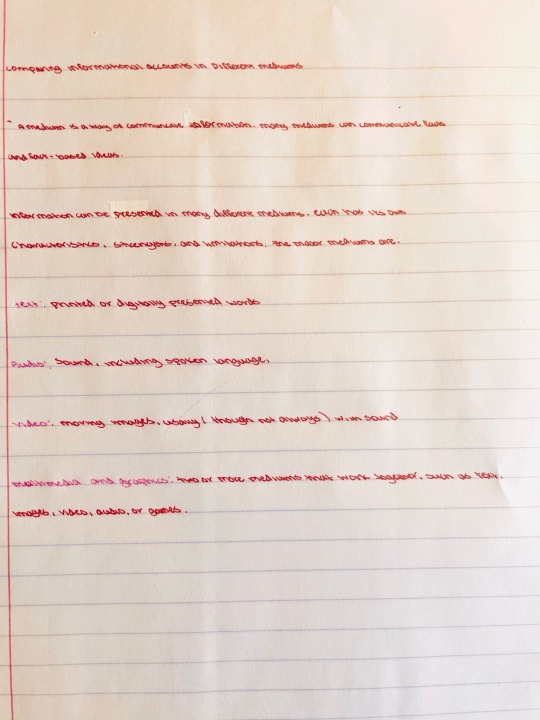 comparing informational accounts in Different mediums
- A medium is a way of communicate information. many mediums can communicate facts
and fact-based ideas.
information can be presented in many different mediums. each has its own
characteristics, strengths, and limitations, the major mediums are.
text: printed or digitally presented words
Audio: Sound, including spoken language,
video: moving images, usualy ( though not always) with sound
multimedia and graphics: two or more mediums that work together, such as text,
images, video, audio, or games.